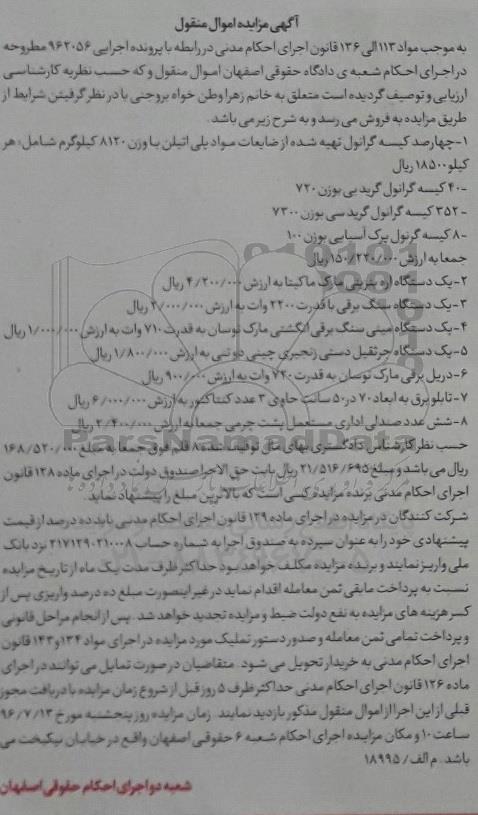 آگهی مزایده اموال منقول
به موجب مواد ۱۱۳ الی ۱۳۶ قانون اجرای احکام مدنی در رابطه با پرونده اجرایی ۹۶۲۰۵۶ مطروحه
در اجرای احکام شعبه ی دادگاه حقوقی اصفهان اموال منقول و که حسب نظریه کارشناسی
ارزیابی و توصیف گردیده است متعلق به خانم زهرا وطن خواه بروجنی با در نظر گرفتین شرایط از
طریق مزایده به فروش می رسد و به شرح زیر می باشد.
۱-چهارصد کیسه گرانول تهیه شده از ضایعات مواد پلی اتیلن با وزن ۸۱۲۰ کیلوگرم شامل: هر
کیلو ۱۸۵۰۰ ریال
-۴۰ کیسه گرانول گرید بی بوزن ۷۲۰
-۳۵۲ کیسه گرانول گرید سی بوزن ۷۳۰۰
-۸ کیسه گرنول پرک آسیابی بوزن ۱۰۰
جمعا به ارزش ۱۵۰/۲۲۰/۰۰۰ ریال
۲-یک دستگاه اره بنزینی مارک ماکیتا به ارزش ۴/۲۰۰/۰۰۰ ریال
۳-یک دستگاه سنگ برقی با قدرت ۲۲۰۰ وات به ارزش ۲/۰۰۰/۰۰۰ ریال
۴-یک دستگاه مینی سنگ برقی انگشتی مارک توسان به قدرت ۷۱۰ وات به ارزش ۱/۰۰۰/۰۰۰ ریال
۵-یک دستگاه جرثقیل دستی زنجیری چینی دو تنی به ارزش ۱/۸۰۰/۰۰۰ ریال
۶-دریل برقی مارک توسان به قدرت ۷۲۰ وات به ارزش ۹۰۰/۰۰۰ ریال
۷-تابلو برق به ابعاد ۷۰ در ۵۰ سانت حاوی ۳ عدد کنتاکتور به ارزش ۶/۰۰۰/۰۰۰ ریال
۸-شش عدد صندلی اداری مستعمل پشت چرمی جمعا به ارزش ۲/۴۰۰/۰۰۰ ریال
حسب نظر کارشناس دادگستری بهای مال توقیف شده ۸ قلم فوق جمعا به مبلغ ۱۶۸/۵۲۰/۰۰۰
ریال می باشد و مبلغ ۲۱/۵۱۶/۶۹۵ ریال بابت حق الاجرا صندوق دولت در اجرای ماده ۱۲۸ قانون
اجرای احکام مدنی برنده مزایده کسی است که بالاترین مبلغ را پیشنهاد نماید.
شرکت کنندگان در مزایده در اجرای ماده ۱۲۹ قانون اجرای احکام مدنی باید ده درصد از قیمت
پیشنهادی خود را به عنوان سپرده به صندوق اجرا به شماره حساب ۲۱۷۱۲۹۰۲۱۰۰۰۸ نزد بانک
ملی واریز نمایند و برنده مزایده مکلف خواهد بود حداکثر ظرف مدت یک ماه از تاریخ مزایده
نسبت به پرداخت مابقی ثمن معامله اقدام نماید در غیر اینصورت مبلغ ده درصد واریزی پس از
کسر هزینه های مزایده به نفع دولت ضبط و مزایده تجدید خواهد شد. پس از انجام مراحل قانونی
و پرداخت تمامی ثمن معامله و صدور دستور تملیک مورد مزایده در اجرای مواد ۱۳۴ و ۱۴۳ قانون
اجرای احکام مدنی به خریدار تحویل می شود. متقاضیان در صورت تمایل می توانند در اجرای
ماده ۱۲۶ قانون اجرای احکام مدنی حداکثر ظرف ۵ روز قبل از شروع زمان مزایده با دریافت مجوز
قبلی از این اجرا از اموال منقول مذکور بازدید نمایند. زمان مزایده روز پنجشنبه مورخ ۹۶/۷/۱۳
ساعت ۱۰ و مکان مزایده اجرای احکام شعبه ۶ حقوقی اصفهان واقع در خیابان نیکبخت می
باشد. م الف/۱۸۹۹۵
شعبه دو اجرای احکام حقوقی اصفهان
ParsNamadData